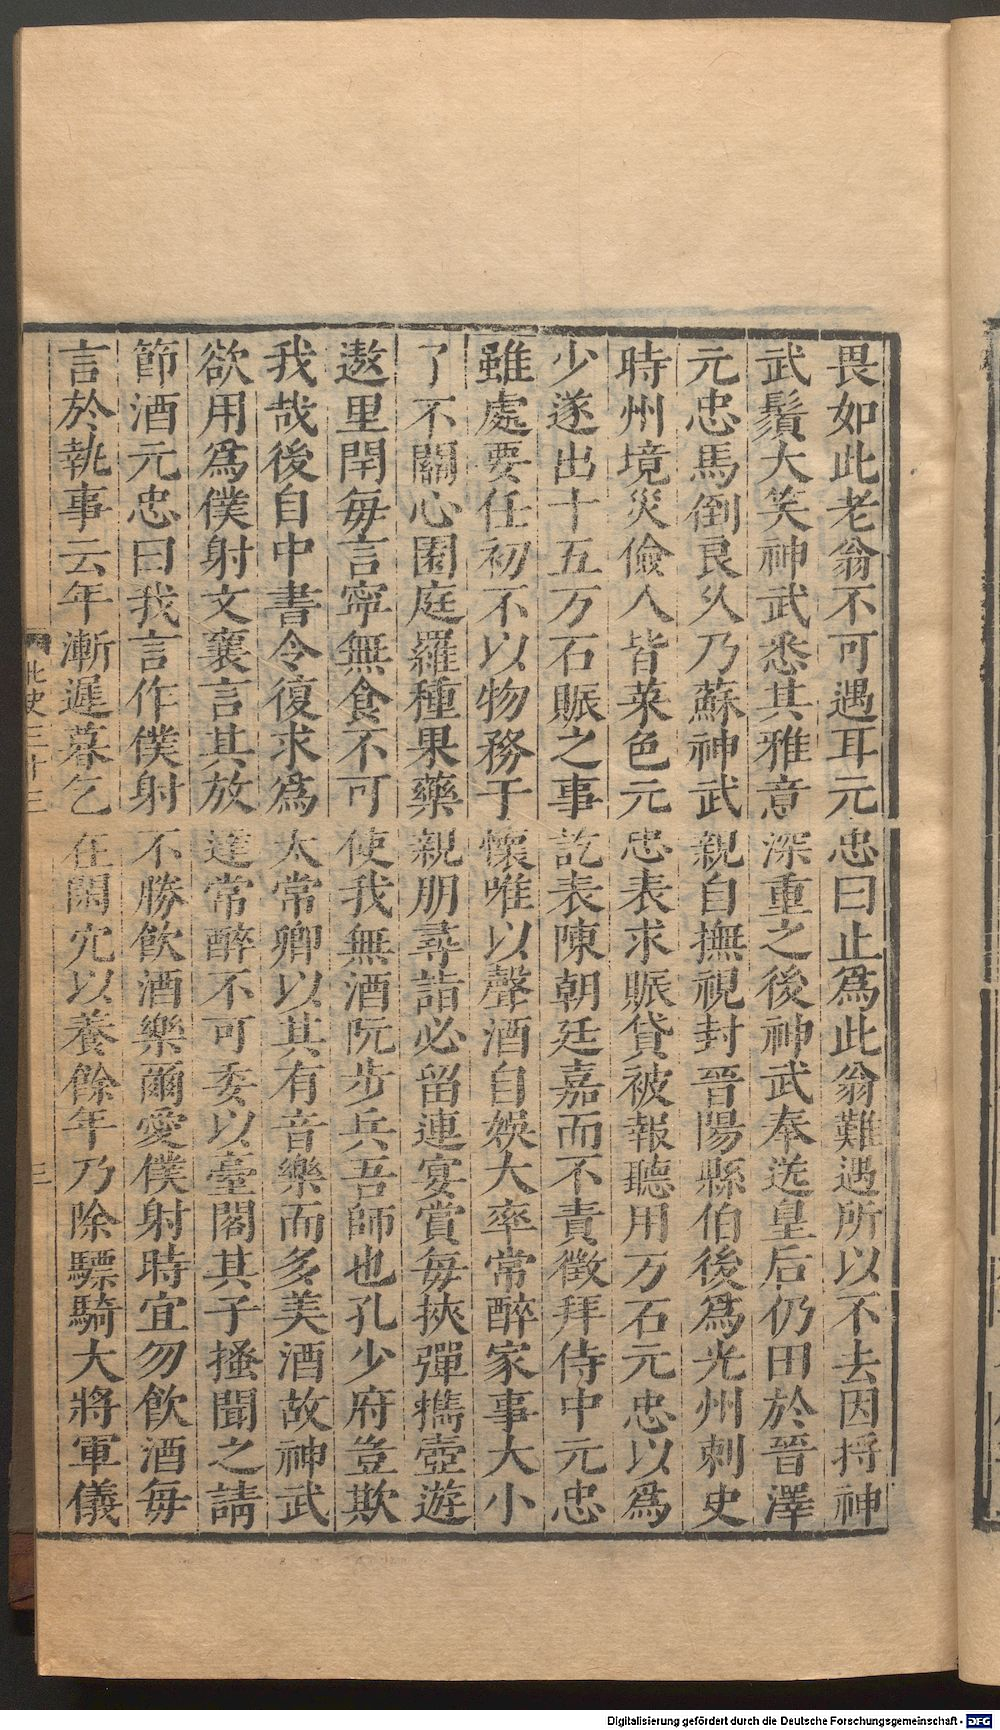 畏如此老翁不可遇耳元忠曰止爲此翁難遇所以不去因捋神
武鬚大笑神武悉其雅意深重之後神武奉送皇后仍田於晉澤
元忠馬倒良久乃蘇神武親自撫視封晉陽縣伯後爲光州刺史
時州境災儉人皆菜色元忠表求賑貸被報聽用万石元忠以爲
少遂出十五万石賑之事訖表陳朝廷嘉而不責徵拜侍中元忠
雖處要任初不以物務于懷唯以聲酒自娛大率常醉家事大小
了不關心園庭羅種果藥親朋尋詣必留連宴賞每挾彈攜壺遊
遨里閈每言寧無食不可使我無酒阮步兵吾師也孔少府豈欺
我哉後自中書令復求爲太常卿以其有音樂而多美酒故神武
欲用爲僕射文襄言其放達常醉不可委以臺閣其子搔聞之請
節酒元忠曰我言作僕射不勝飲酒樂爾愛僕射時宜勿飲酒每
言於執事云年漸遲暮乞在閑冗以養餘年乃除驃騎大將軍儀
北史三十三
三
Digitalisierung gefördert durch die Deutsche Forschungsgemeinschaft - DFG